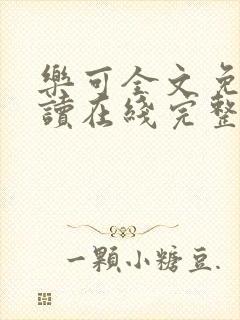 樂可全文免
讀在綫完整
一顆小糖豆.